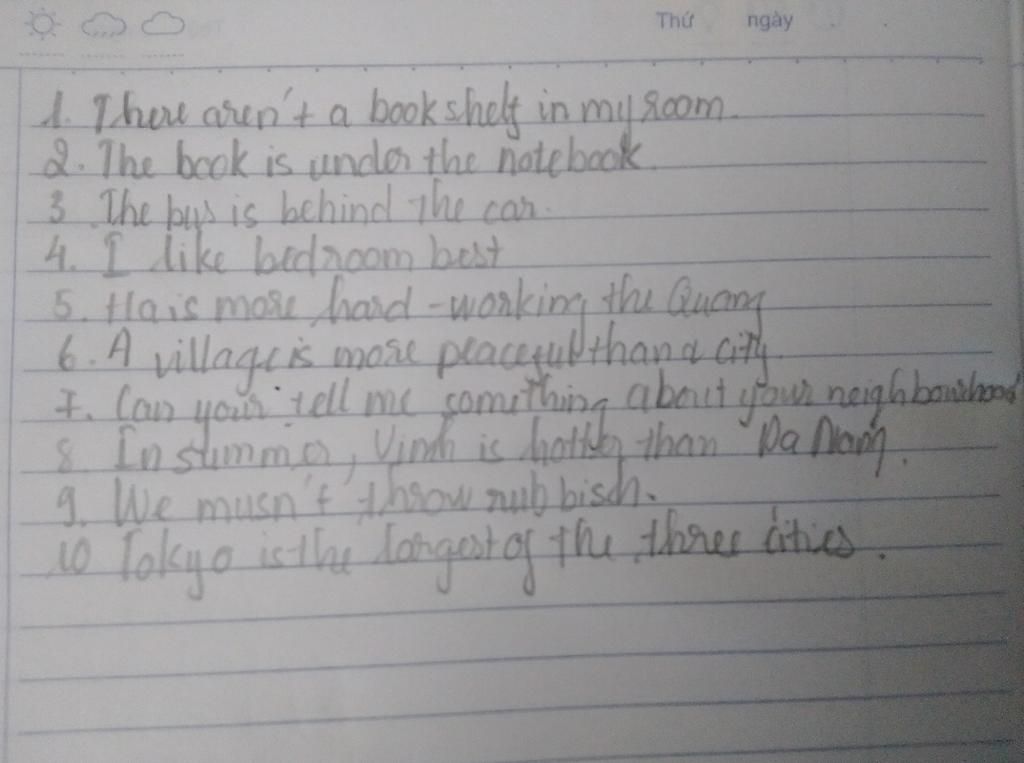 Thứ ngày
1. There aren't a bookshelf in my room.
2. The book is under the notebook.
3. The bus is behind the car.
4. I like bedroom best
5. Ha is more hard-working the Quang
6. A village is more peaceful than a city.
7. Can your tell me something about your neighbourhood
8. In summer, Vinh is hotter than Da Nang.
9. We musn't throw rubbisch.
10 Tokyo is the largest of the three cities.